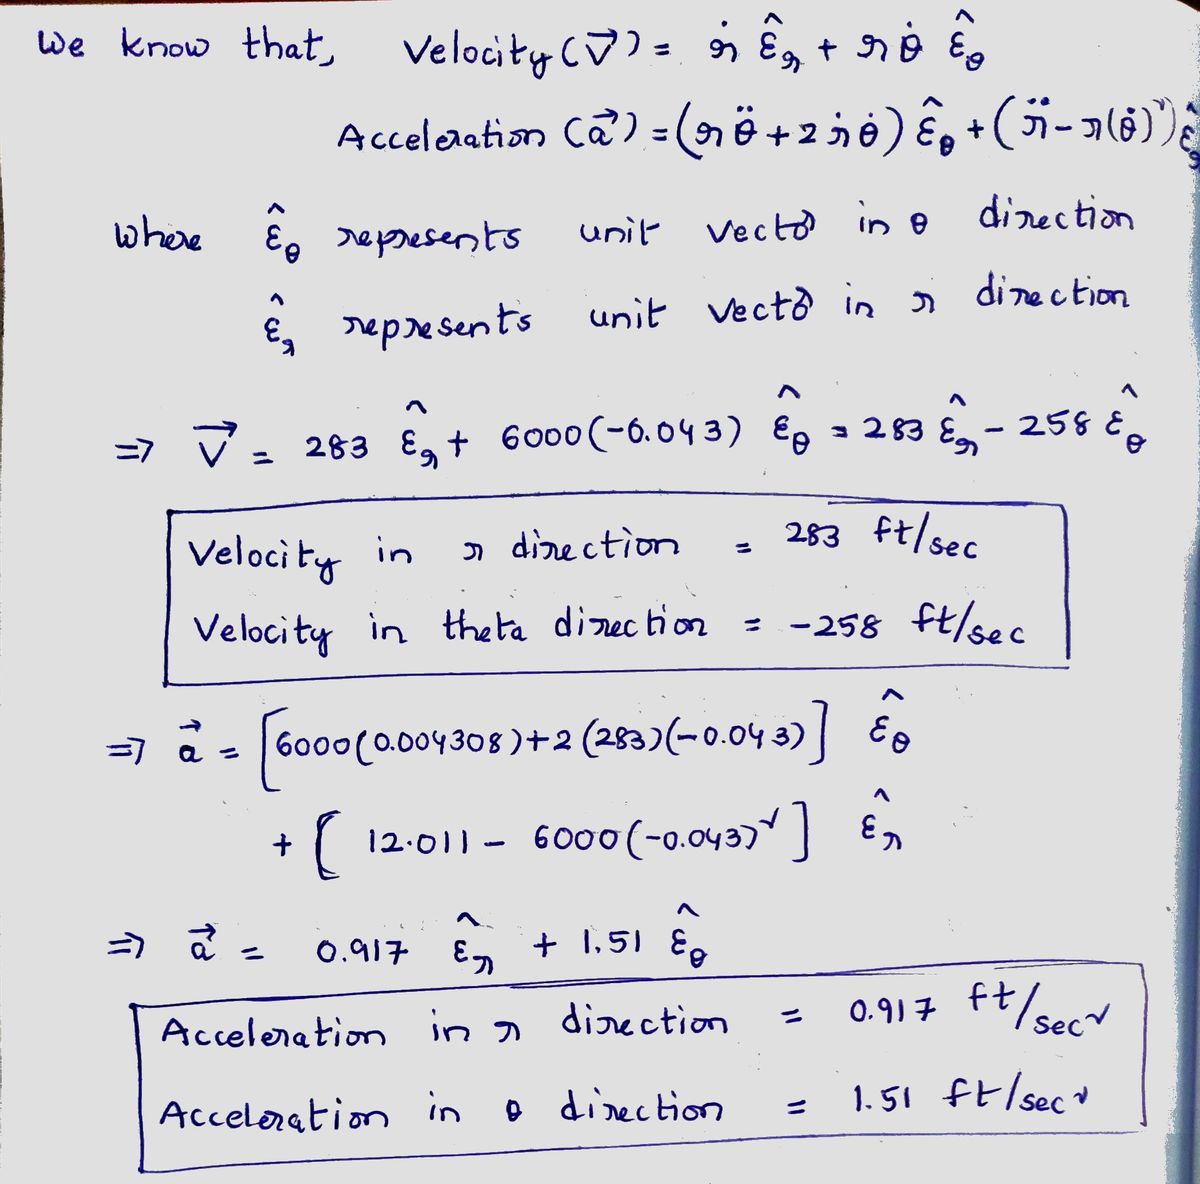 We know that, Velocity (V⃗) = ṙ ε̂r + rθ̇ ε̂θ
Acceleration (a⃗) = (rθ̈ + 2ṙθ̇) ε̂θ + (r̈ - r(θ̇)²) ε̂r
where ε̂θ represents unit vector in θ direction
ε̂r represents unit vector in r direction
=> V⃗ = 283 ε̂r + 6000(-0.043) ε̂θ = 283 ε̂r - 258 ε̂θ
Velocity in r direction = 283 ft/sec
Velocity in theta direction = -258 ft/sec
=> a⃗ = [6000(0.004308)+2(283)(-0.043)] ε̂θ
+ [12.011 - 6000(-0.043)²] ε̂r
=> a⃗ = 0.917 ε̂r + 1.51 ε̂θ
Acceleration in r direction = 0.917 ft/sec²
Acceleration in θ direction = 1.51 ft/sec²